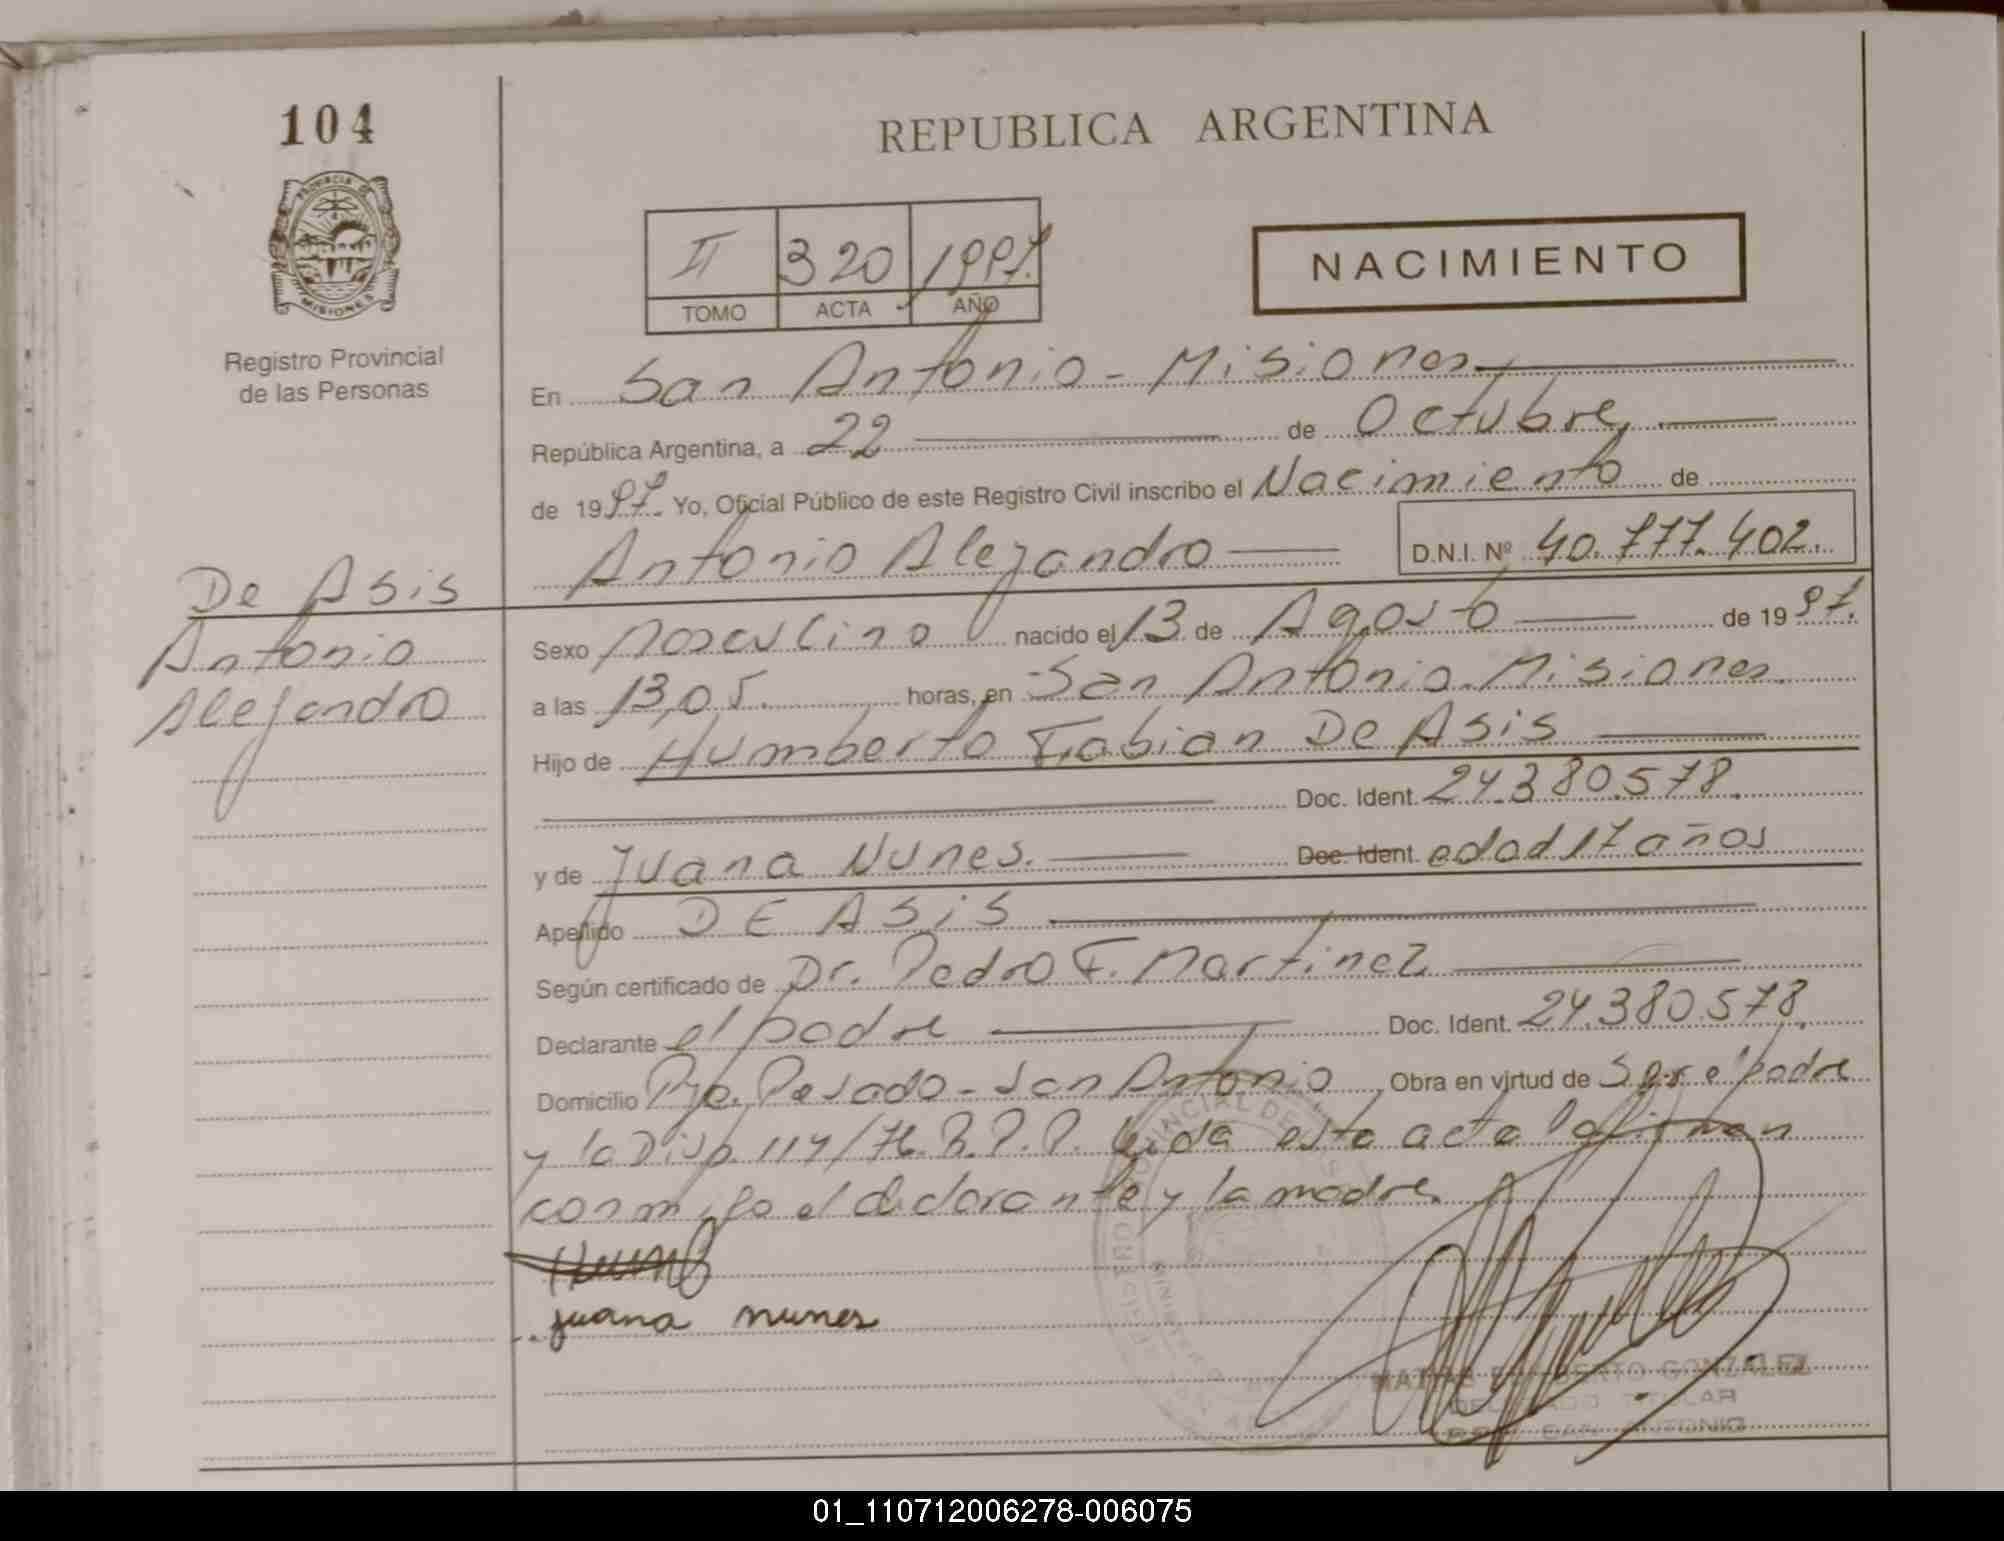 104
REPUBLICA ARGENTINA
PROVINCIA DE
MISIONES
Registro Provincial
de las Personas
II 320 1997.
TOMO ACTA AÑO
NACIMIENTO
En San Antonio - Misiones
República Argentina, a 22 de Octubre
de 1997. Yo, Oficial Público de este Registro Civil inscribo el Nacimiento de
Antonio Alejandro D.N.I. Nº 40.777.402.
De Asis
Antonio
Alejandro
Sexo Masculino nacido el 13 de Agosto de 1997.
a las 13,05. horas, en San Antonio - Misiones.
Hijo de Humberto Fabian De Asis
Doc. Ident. 24.380.578.
y de Juana Nunes. Doc. Ident. edad 17 años
Apellido DE ASIS
Según certificado de Dr. Pedro F. Martinez
Declarante el padre Doc. Ident. 24.380.578.
Domicilio Pje. Rosado - San Antonio Obra en virtud de Ser el padre
y la Disp. 117/76. R.P.P. Leida esta acta la firman
conmigo el declarante y la madre.
juana nunes
GONZALEZ
TITULAR
SAN ANTONIO
01_110712006278-006075